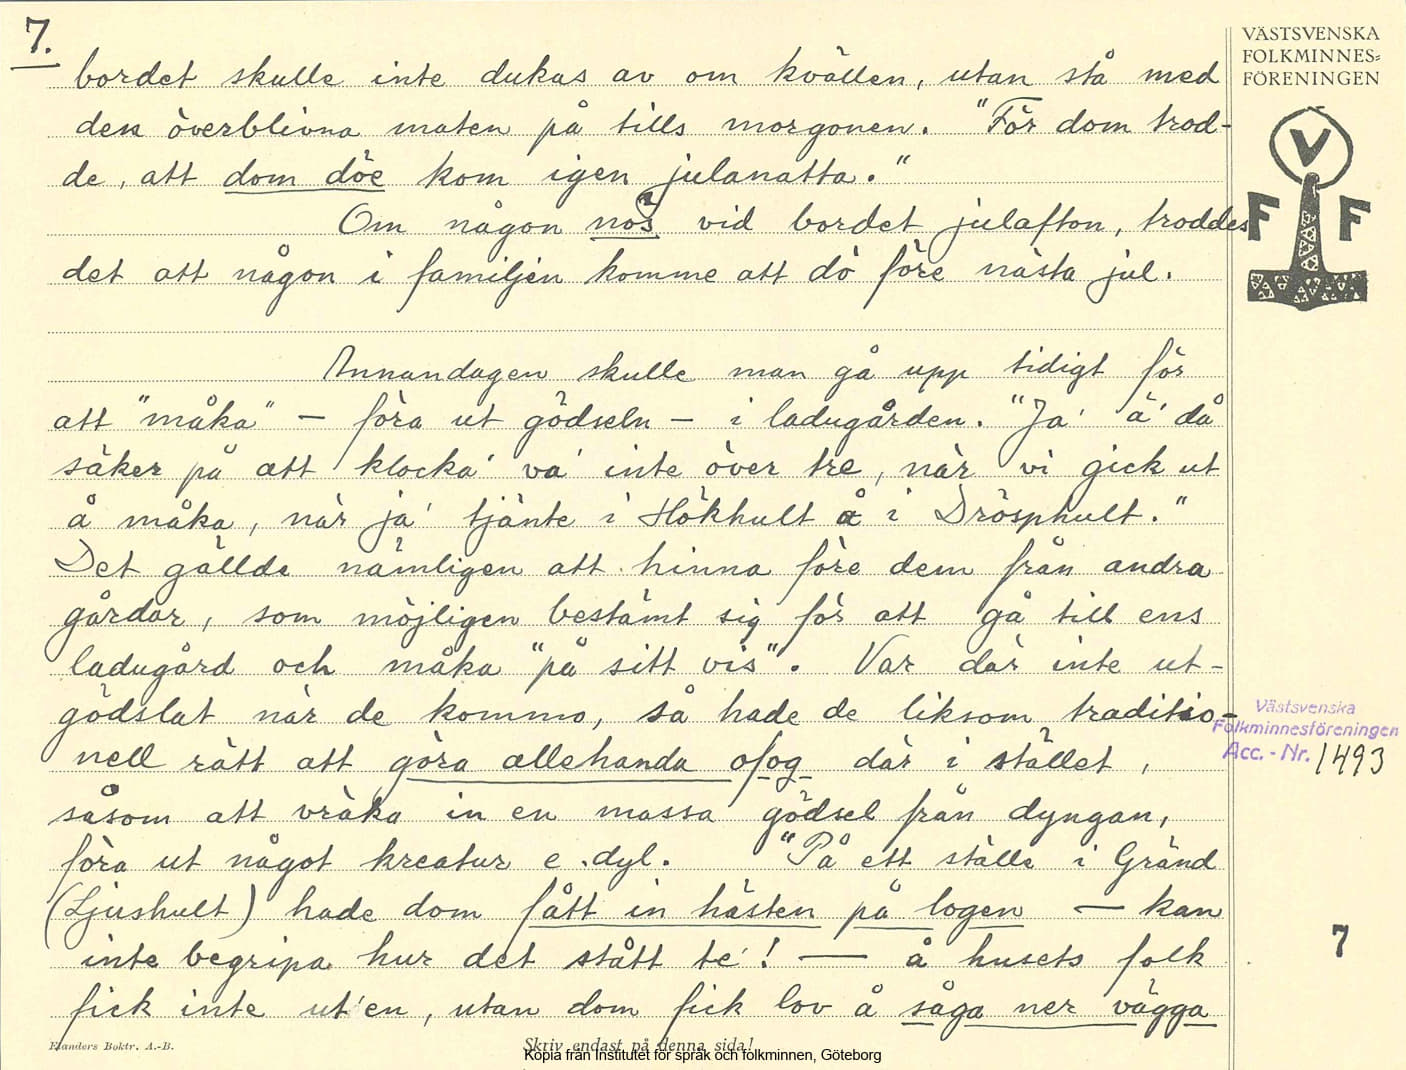 7.
bordet skulle inte dukas av om kvällen, utan stå med
den överblivna maten på tills morgonen. "För dom trod-
de, att dom döe kom igen julanatta."
Om någon nös vid bordet julafton, troddes
det att någon i familjen komme att dö före nästa jul.
Annandagen skulle man gå upp tidigt för
att "måka" – föra ut gödseln – i ladugården. "Ja' ä' då
säker på att klocka' va' inte över tre, när vi gick ut
å måka, när ja' tjänte i Hökhult å i Drösphult."
Det gällde nämligen att hinna före dem från andra
gårdar, som möjligen bestämt sig för att gå till ens
ladugård och måka "på sitt vis". Var där inte ut-
gödslat när de kommo, så hade de liksom traditio-
nell rätt att göra allehanda ofog där i stället,
såsom att vräka in en massa gödsel från dyngan,
föra ut något kreatur e.dyl. "På ett ställe i Gränd
(Ljushult) hade dom fått in hästen på logen – kan
inte begripa hur det stått te'! — å husets folk
fick inte ut'en, utan dom fick lov å såga ner vägga
Elanders Boktr. A.-B.
Skriv endast på denna sida!
Kopia från Institutet för språk och folkminnen, Göteborg
VÄSTSVENSKA
FOLKMINNES-
FÖRENINGEN
V
F F
Västsvenska
Folkminnesföreningen
Acc.-Nr. 1493
7